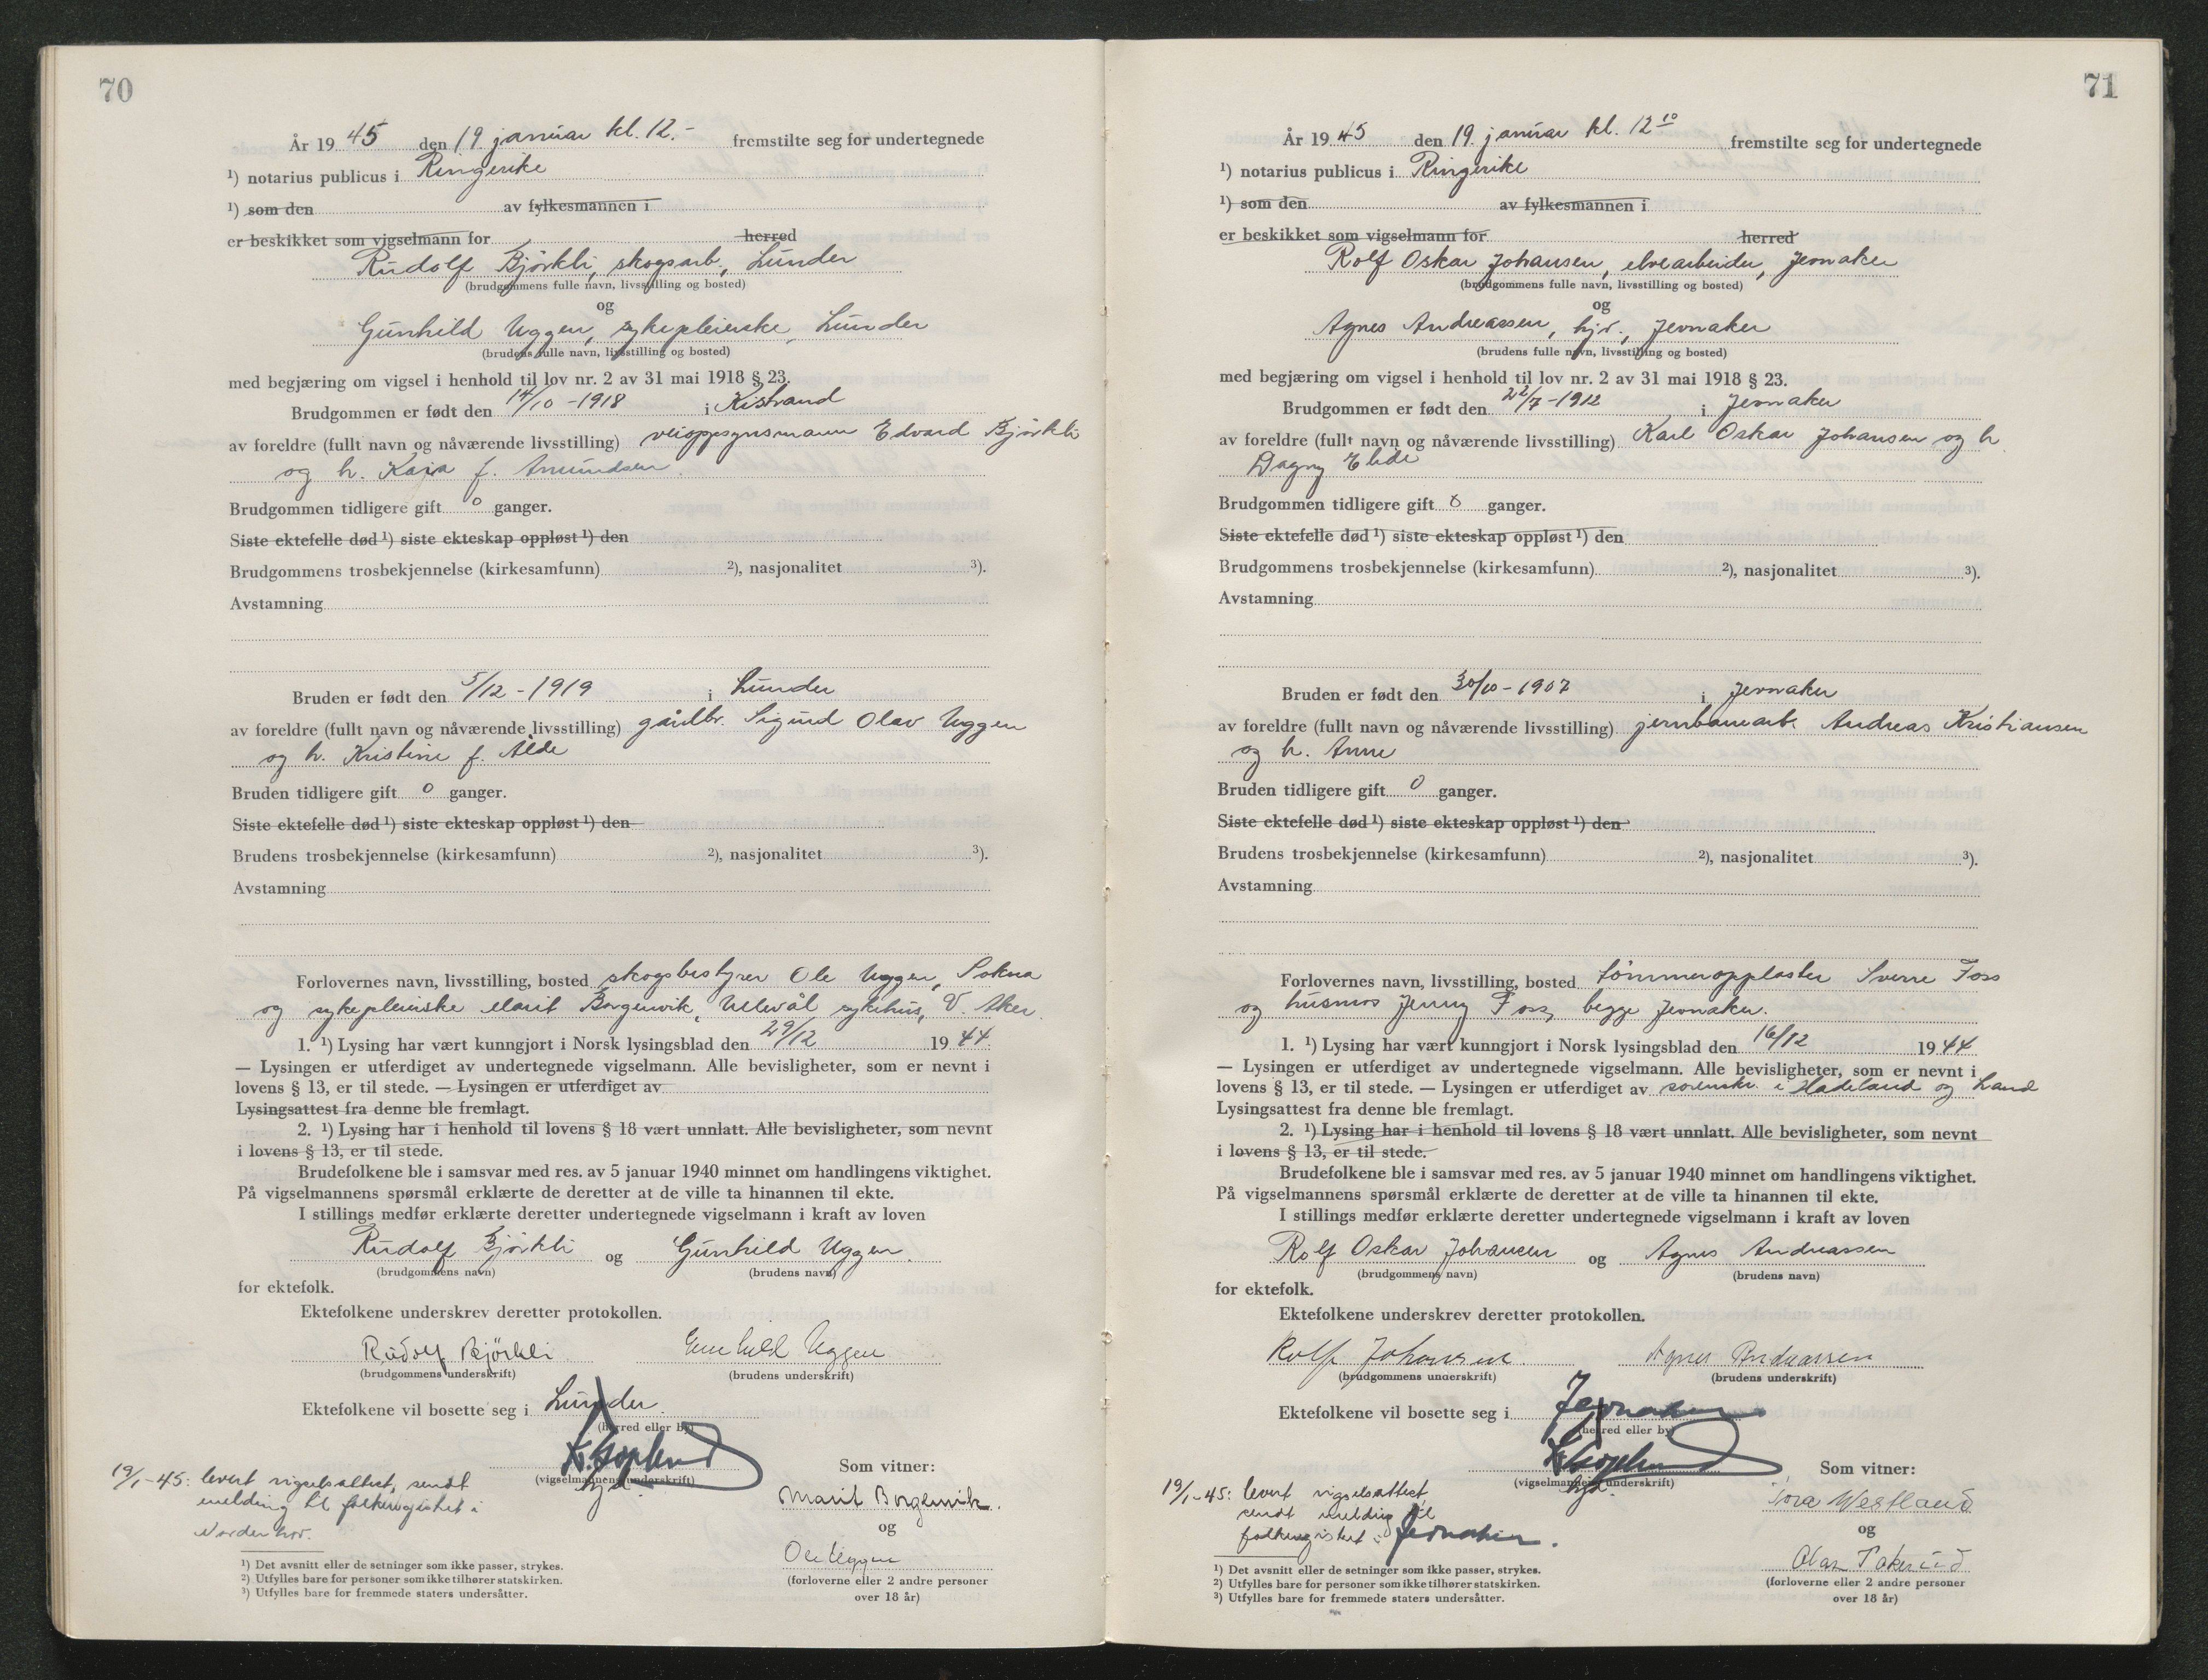 70
År 19 45 den 19. januar kl. 12.- fremstilte seg for undertegnede
¹) notarius publicus i Ringerike
¹) som den av fylkesmannen i
er beskikket som vigselmann for herred
Rudolf Bjørkli, skogsarb., Lunder
(brudgommens fulle navn, livsstilling og bosted)
og
Gunhild Uggen, sykepleierske, Lunder
(brudens fulle navn, livsstilling og bosted)
med begjæring om vigsel i henhold til lov nr. 2 av 31 mai 1918 § 23.
Brudgommen er født den 14/10 - 1918 i Kistrand
av foreldre (fullt navn og nåværende livsstilling) veioppsynsmann Edvard Bjørkli
og h. Kaja f. Amundsen.
Brudgommen tidligere gift 0 ganger.
Siste ektefelle død ¹) siste ekteskap oppløst ¹) den
Brudgommens trosbekjennelse (kirkesamfunn) ²), nasjonalitet ³).
Avstamning
Bruden er født den 5/12 - 1919 i Lunder
av foreldre (fullt navn og nåværende livsstilling) gårdbr. Sigurd Olav Uggen
og h. Kristine f. Ålde
Bruden tidligere gift 0 ganger.
Siste ektefelle død ¹) siste ekteskap oppløst ¹) den
Brudens trosbekjennelse (kirkesamfunn) ²), nasjonalitet ³).
Avstamning
Forlovernes navn, livsstilling, bosted skogsbestyrer Ole Uggen, Sokna
og sykepleierske Marit Borgenvik, Ullevål sykehus, V. Aker.
1. ¹) Lysing har vært kunngjort i Norsk lysingsblad den 29/12 19 44.
— Lysingen er utferdiget av undertegnede vigselmann. Alle bevisligheter, som er nevnt i
lovens § 13, er til stede. — Lysingen er utferdiget av
Lysingsattest fra denne ble fremlagt.
2. ¹) Lysing har i henhold til lovens § 18 vært unnlatt. Alle bevisligheter, som nevnt
i lovens § 13, er til stede.
Brudefolkene ble i samsvar med res. av 5 januar 1940 minnet om handlingens viktighet.
På vigselmannens spørsmål erklærte de deretter at de ville ta hinannen til ekte.
I stillings medfør erklærte deretter undertegnede vigselmann i kraft av loven
Rudolf Bjørkli og Gunhild Uggen.
(brudgommens navn) (brudens navn)
for ektefolk.
Ektefolkene underskrev deretter protokollen.
Rudolf Bjørkli Gunhild Uggen
(brudgommens underskrift) (brudens underskrift)
Ektefolkene vil bosette seg i Lunder.
(herred eller by)
(vigselmannens underskrift)
hjd.
19/1-45: levert vigselsattest, sendt
melding til folkeregistret i
Norderhov.
Som vitner:
Marit Borgenvik.
og
Ole Uggen
(forloverne eller 2 andre personer
over 18 år)
¹) Det avsnitt eller de setninger som ikke passer, strykes.
²) Utfylles bare for personer som ikke tilhører statskirken.
³) Utfylles bare for fremmede staters undersåtter.
71
År 19 45 den 19. januar kl. 12 10 fremstilte seg for undertegnede
¹) notarius publicus i Ringerike
¹) som den av fylkesmannen i
er beskikket som vigselmann for herred
Rolf Oskar Johansen, elvearbeider, Jevnaker
(brudgommens fulle navn, livsstilling og bosted)
og
Agnes Andreassen, hjv., Jevnaker
(brudens fulle navn, livsstilling og bosted)
med begjæring om vigsel i henhold til lov nr. 2 av 31 mai 1918 § 23.
Brudgommen er født den 22/7 - 1912 i Jevnaker
av foreldre (fullt navn og nåværende livsstilling) Karl Oskar Johansen og h.
Dagny Elide
Brudgommen tidligere gift 0 ganger.
Siste ektefelle død ¹) siste ekteskap oppløst ¹) den
Brudgommens trosbekjennelse (kirkesamfunn) ²), nasjonalitet ³).
Avstamning
Bruden er født den 30/10 - 1907 i Jevnaker
av foreldre (fullt navn og nåværende livsstilling) jernbanearb. Andreas Kristiansen
og h. Anne
Bruden tidligere gift 0 ganger.
Siste ektefelle død ¹) siste ekteskap oppløst ¹) den
Brudens trosbekjennelse (kirkesamfunn) ²), nasjonalitet ³).
Avstamning
Forlovernes navn, livsstilling, bosted tømmeropplaster Sverre Foss
og husmor Jenny Foss, begge Jevnaker.
1. ¹) Lysing har vært kunngjort i Norsk lysingsblad den 16/12 19 44
— Lysingen er utferdiget av undertegnede vigselmann. Alle bevisligheter, som er nevnt i
lovens § 13, er til stede. — Lysingen er utferdiget av sorenskr. i Hadeland og Land
Lysingsattest fra denne ble fremlagt.
2. ¹) Lysing har i henhold til lovens § 18 vært unnlatt. Alle bevisligheter, som nevnt
i lovens § 13, er til stede.
Brudefolkene ble i samsvar med res. av 5 januar 1940 minnet om handlingens viktighet.
På vigselmannens spørsmål erklærte de deretter at de ville ta hinannen til ekte.
I stillings medfør erklærte deretter undertegnede vigselmann i kraft av loven
Rolf Oskar Johansen og Agnes Andreassen
(brudgommens navn) (brudens navn)
for ektefolk.
Ektefolkene underskrev deretter protokollen.
Rolf Johansen. Agnes Andreassen
(brudgommens underskrift) (brudens underskrift)
Ektefolkene vil bosette seg i Jevnaker
(herred eller by)
(vigselmannens underskrift)
hjd.
19/1-45: levert vigselsattest,
sendt melding til
folkeregistret i Jevnaker.
Som vitner:
Tora Westland
og
Olav Tokerud
(forloverne eller 2 andre personer
over 18 år)
¹) Det avsnitt eller de setninger som ikke passer, strykes.
²) Utfylles bare for personer som ikke tilhører statskirken.
³) Utfylles bare for fremmede staters undersåtter.